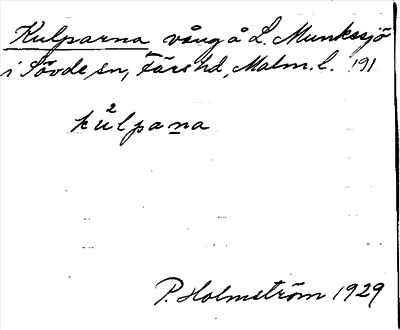 Kulparna vång å L. Munksjö
i Sövde sn, Färs hd, Malm. l. 191
ku²lpana
P. Holmström 1929